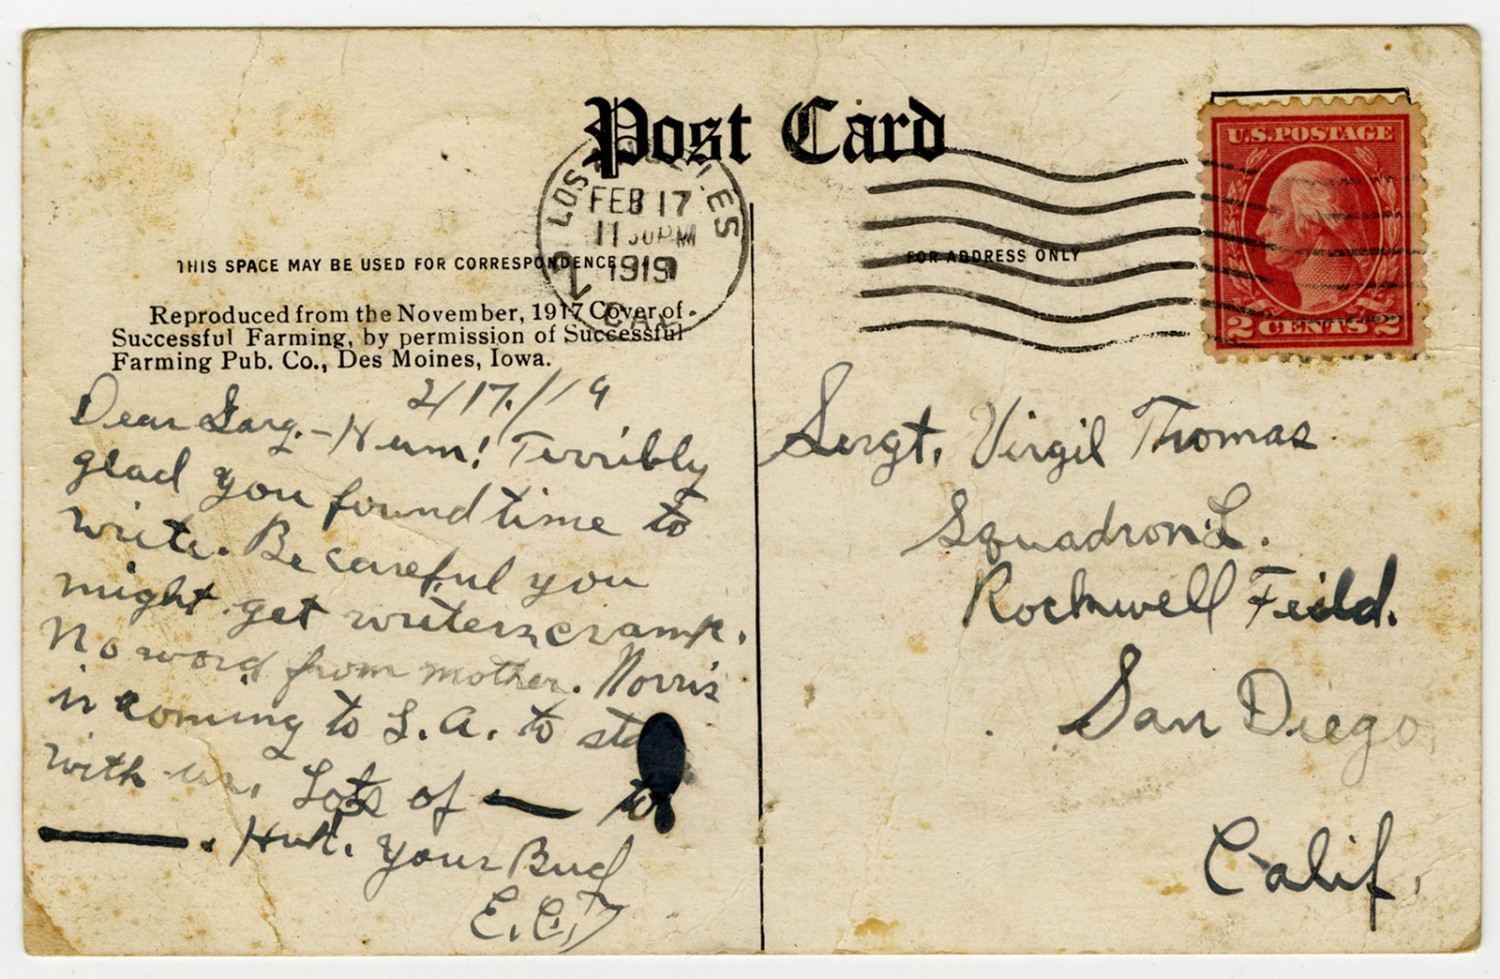 Post Card
U.S. POSTAGE
2 CENTS 2
LOS
FEB 17
11 30 PM
1919
CAL.
THIS SPACE MAY BE USED FOR CORRESPONDENCE
FOR ADDRESS ONLY
Reproduced from the November, 1917 Cover of
Successful Farming, by permission of Successful
Farming Pub. Co., Des Moines, Iowa.
2/17/19
Dear Sarg. – Hum! Terribly
glad you found time to
write. Be careful you
might get writers cramp.
No word from mother. Norris
is coming to L.A. to
with us. Lots of — to
—. Huh. Your Bud
E.C.T
Sergt. Virgil Thomas
Squadron L.
Rockwell Feild.
San Diego,
Calif.